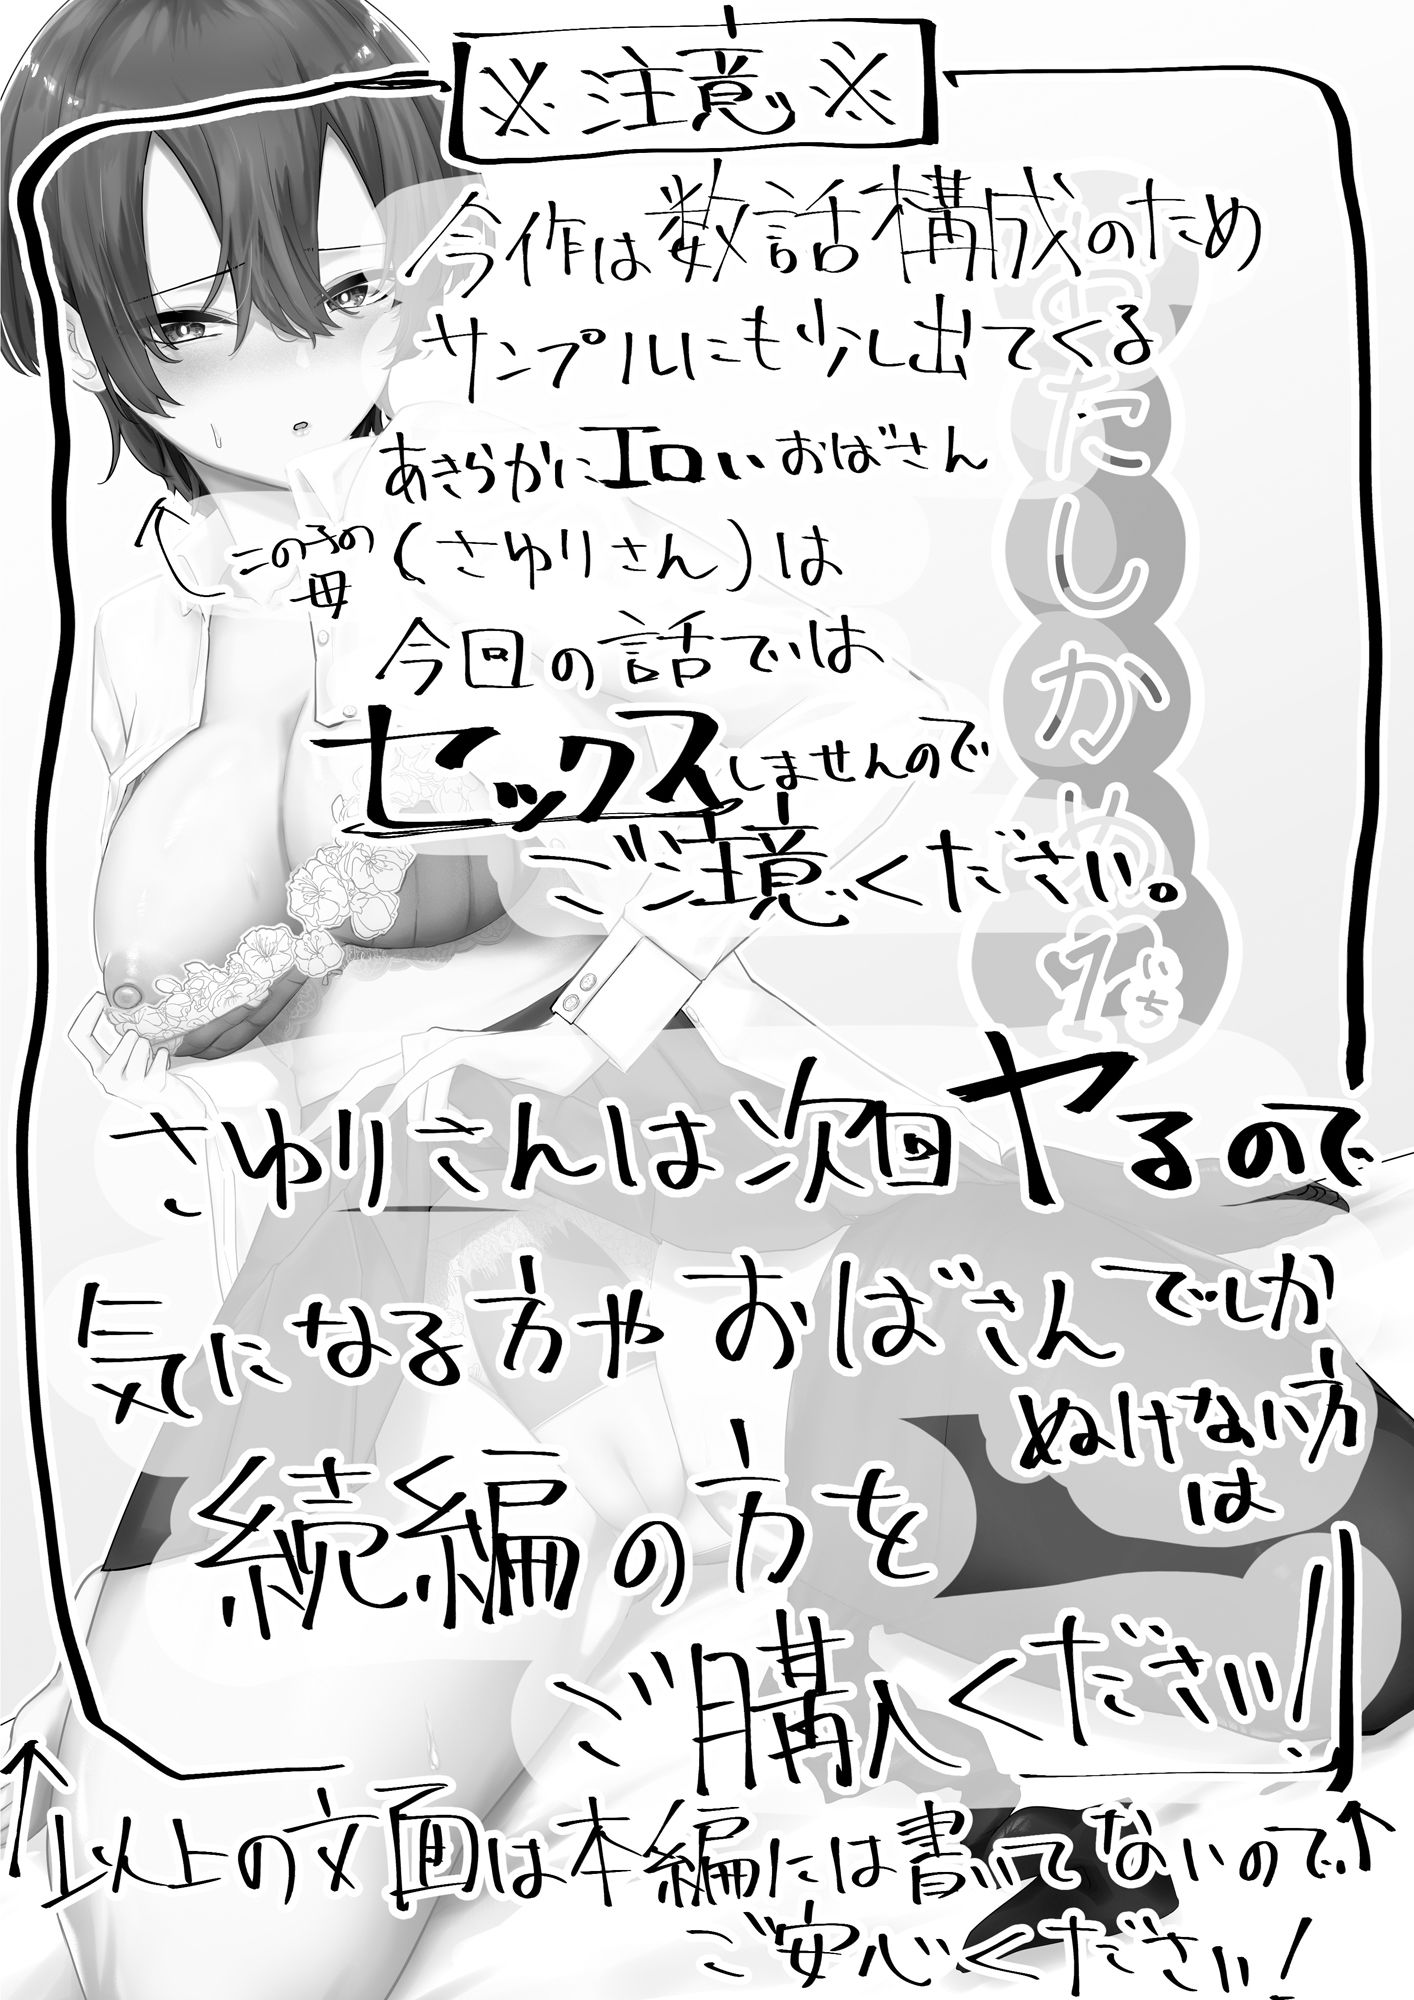 ※注意※
今作は数話構成のため
サンプルにも少し出てくる
あきらかにエロいおばさん
この子の母
(さゆりさん)は
今回の話では
セックスしませんので
ご注意ください。
さゆりさんは次回ヤるので
気になる方やおばさんでしか
ぬけない方は
続編の方を
ご購入ください!
以上の文面は本編には書いてないので
ご安心ください!